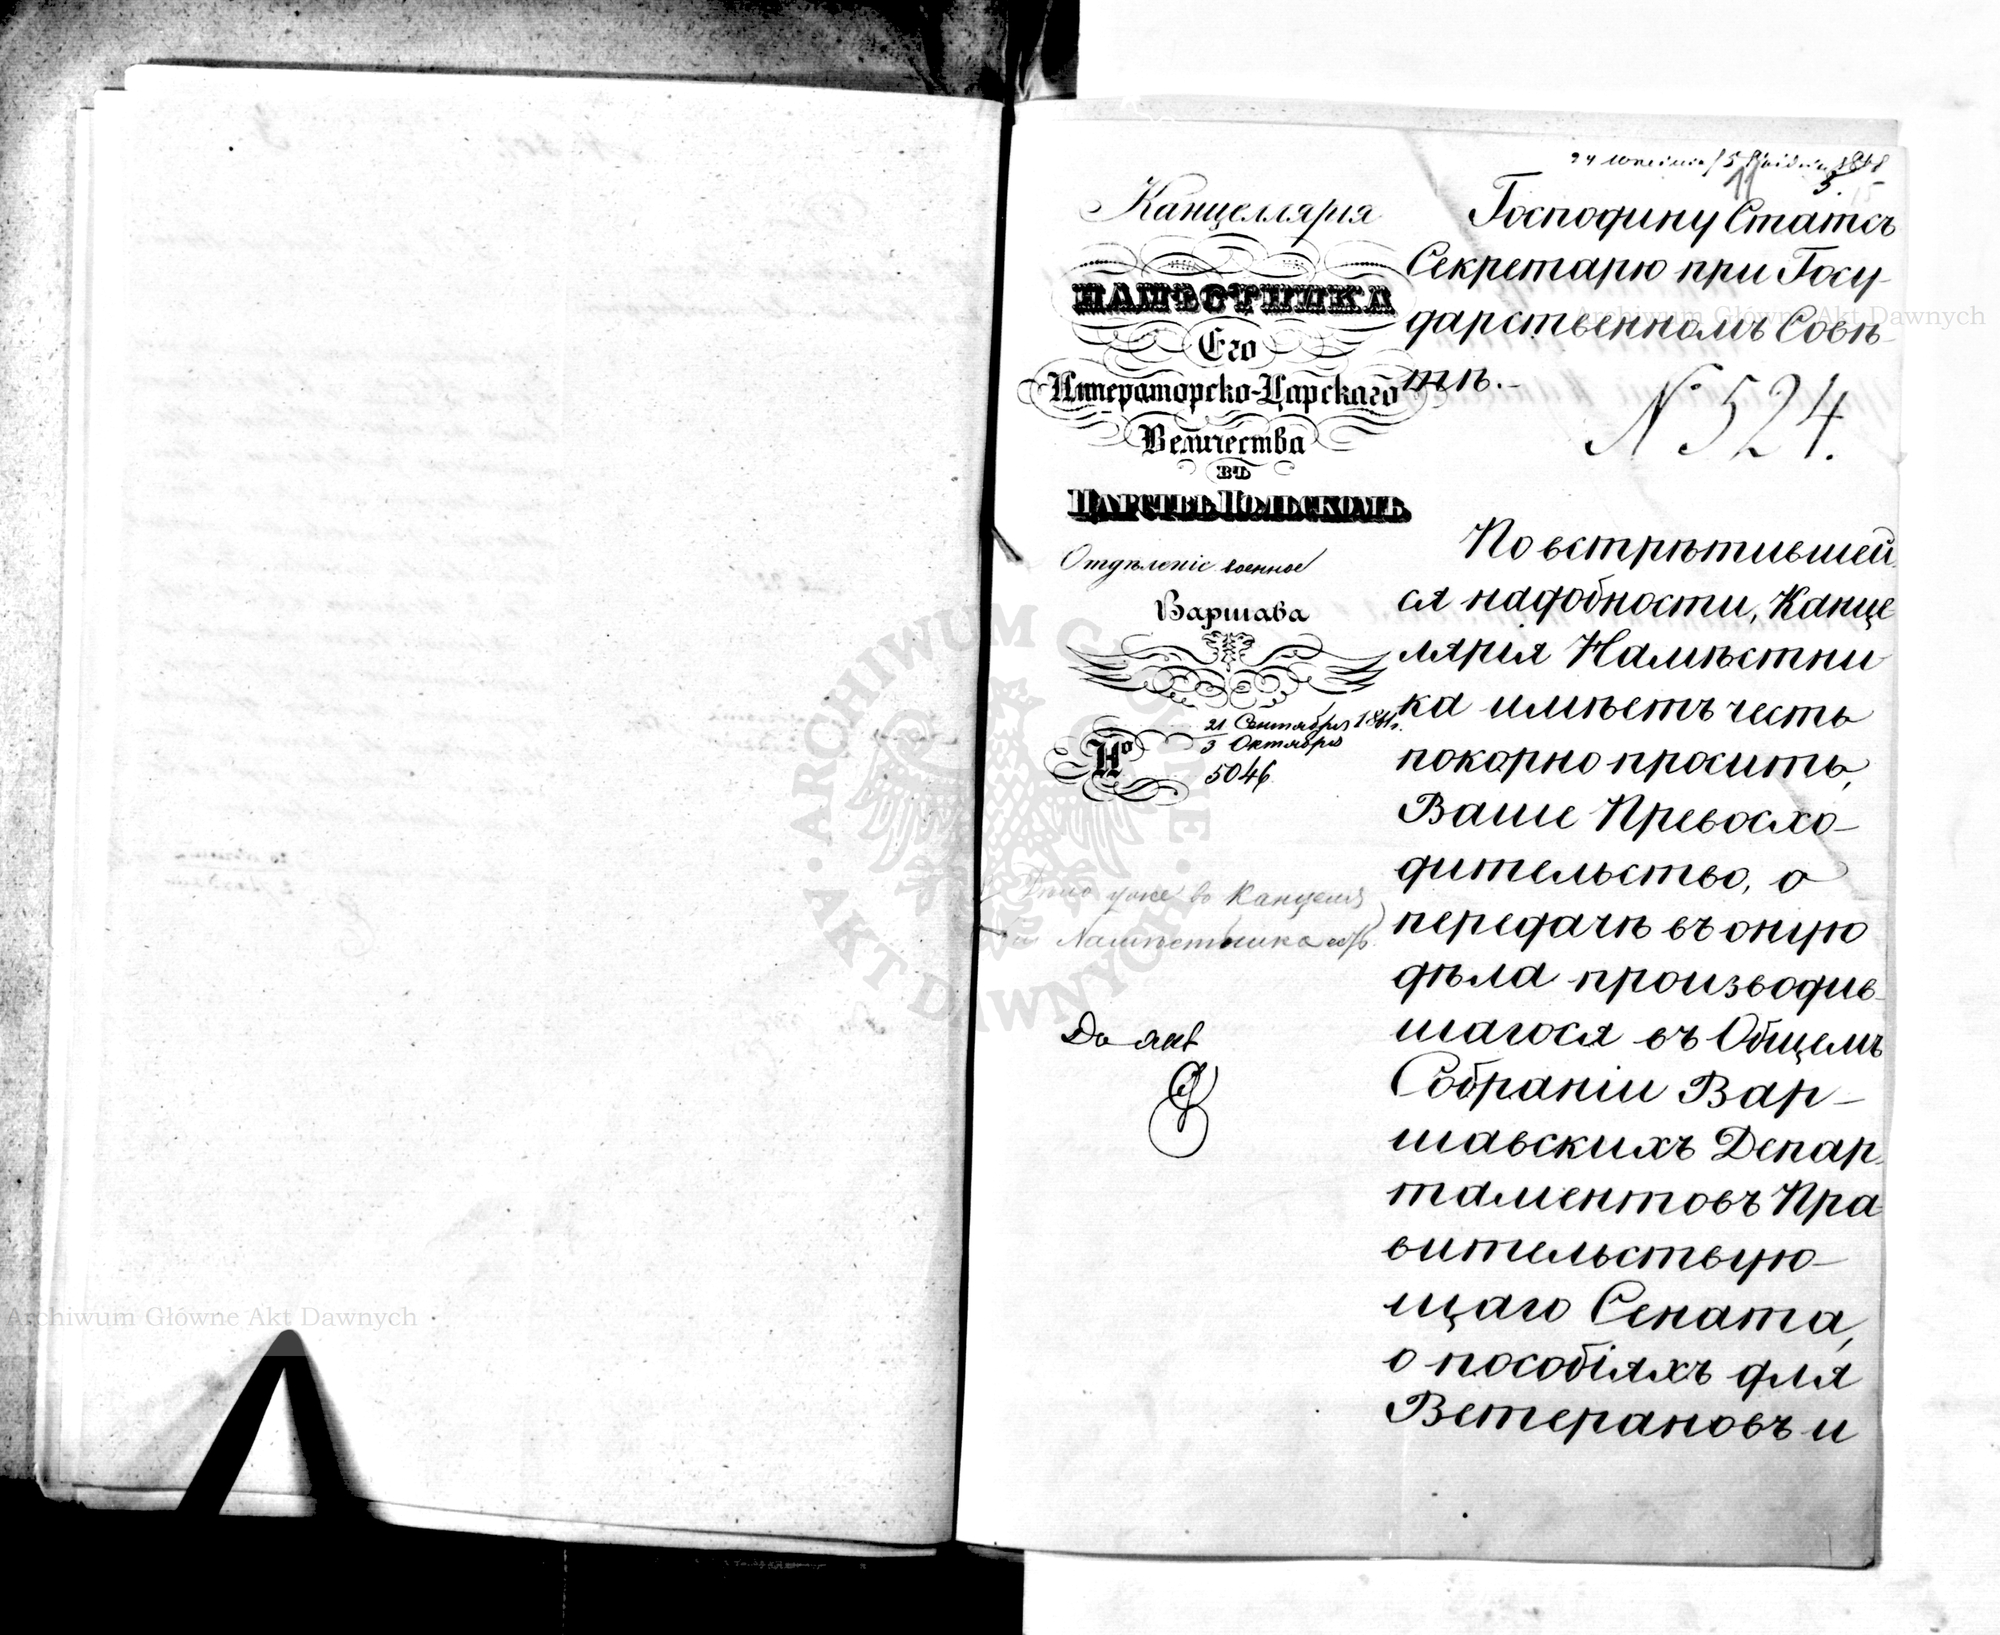 Канцеллярія
НАМѢСТНИКА
Его
Императорско-Царскаго
Величества
въ
ЦАРСТВѢ ПОЛЬСКОМЪ
Отдѣленіе военное
Варшава
21 Сентября 1861 г.
3 Октября
№ 5046
Дѣло уже во Канцеля
Намѣстника
Do akt
1861
5.
Господину Статсъ
Секретарю при Госу-
дарственномъ Совѣ-
тѣ.-
№ 524.
По встрѣтившей
ся надобности, Канце
лярія Намѣстни
ка имѣетъ честь
покорно просить,
Ваше Превосхо-
дительство, о
передачѣ въ оную
дѣла производив-
шагося въ Общемъ
Собраніи Вар-
шавскихъ Депар-
таментовъ Пра
вительствую-
щаго Сената,
о пособіяхъ для
Ветерановъ и
Archiwum Główne Akt Dawnych
Archiwum Główne Akt Dawnych
ARCHIWUM GŁÓWNE · AKT DAWNYCH ·